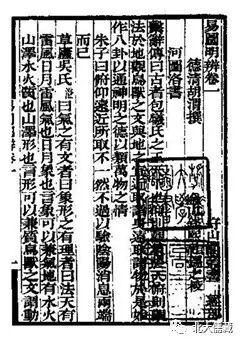 易圖明辨卷一
德清胡渭撰
河圖洛書
繫辭傳曰古者包羲氏之王天下
法於地觀鳥獸之文與地之宜近取諸身遠取諸物於是始
作八卦以通神明之德以類萬物之情
朱子曰俯仰遠近所取不一然不過以驗陰陽消息兩端
而已
草廬吳氏曰氣之有文者曰象形之有理者曰法天有
雷風日月雷風氣也日月象也言象可以兼氣地有水火
山澤水火質也山澤形也言形可以兼質鳥獸之文謂動
北大儒藏